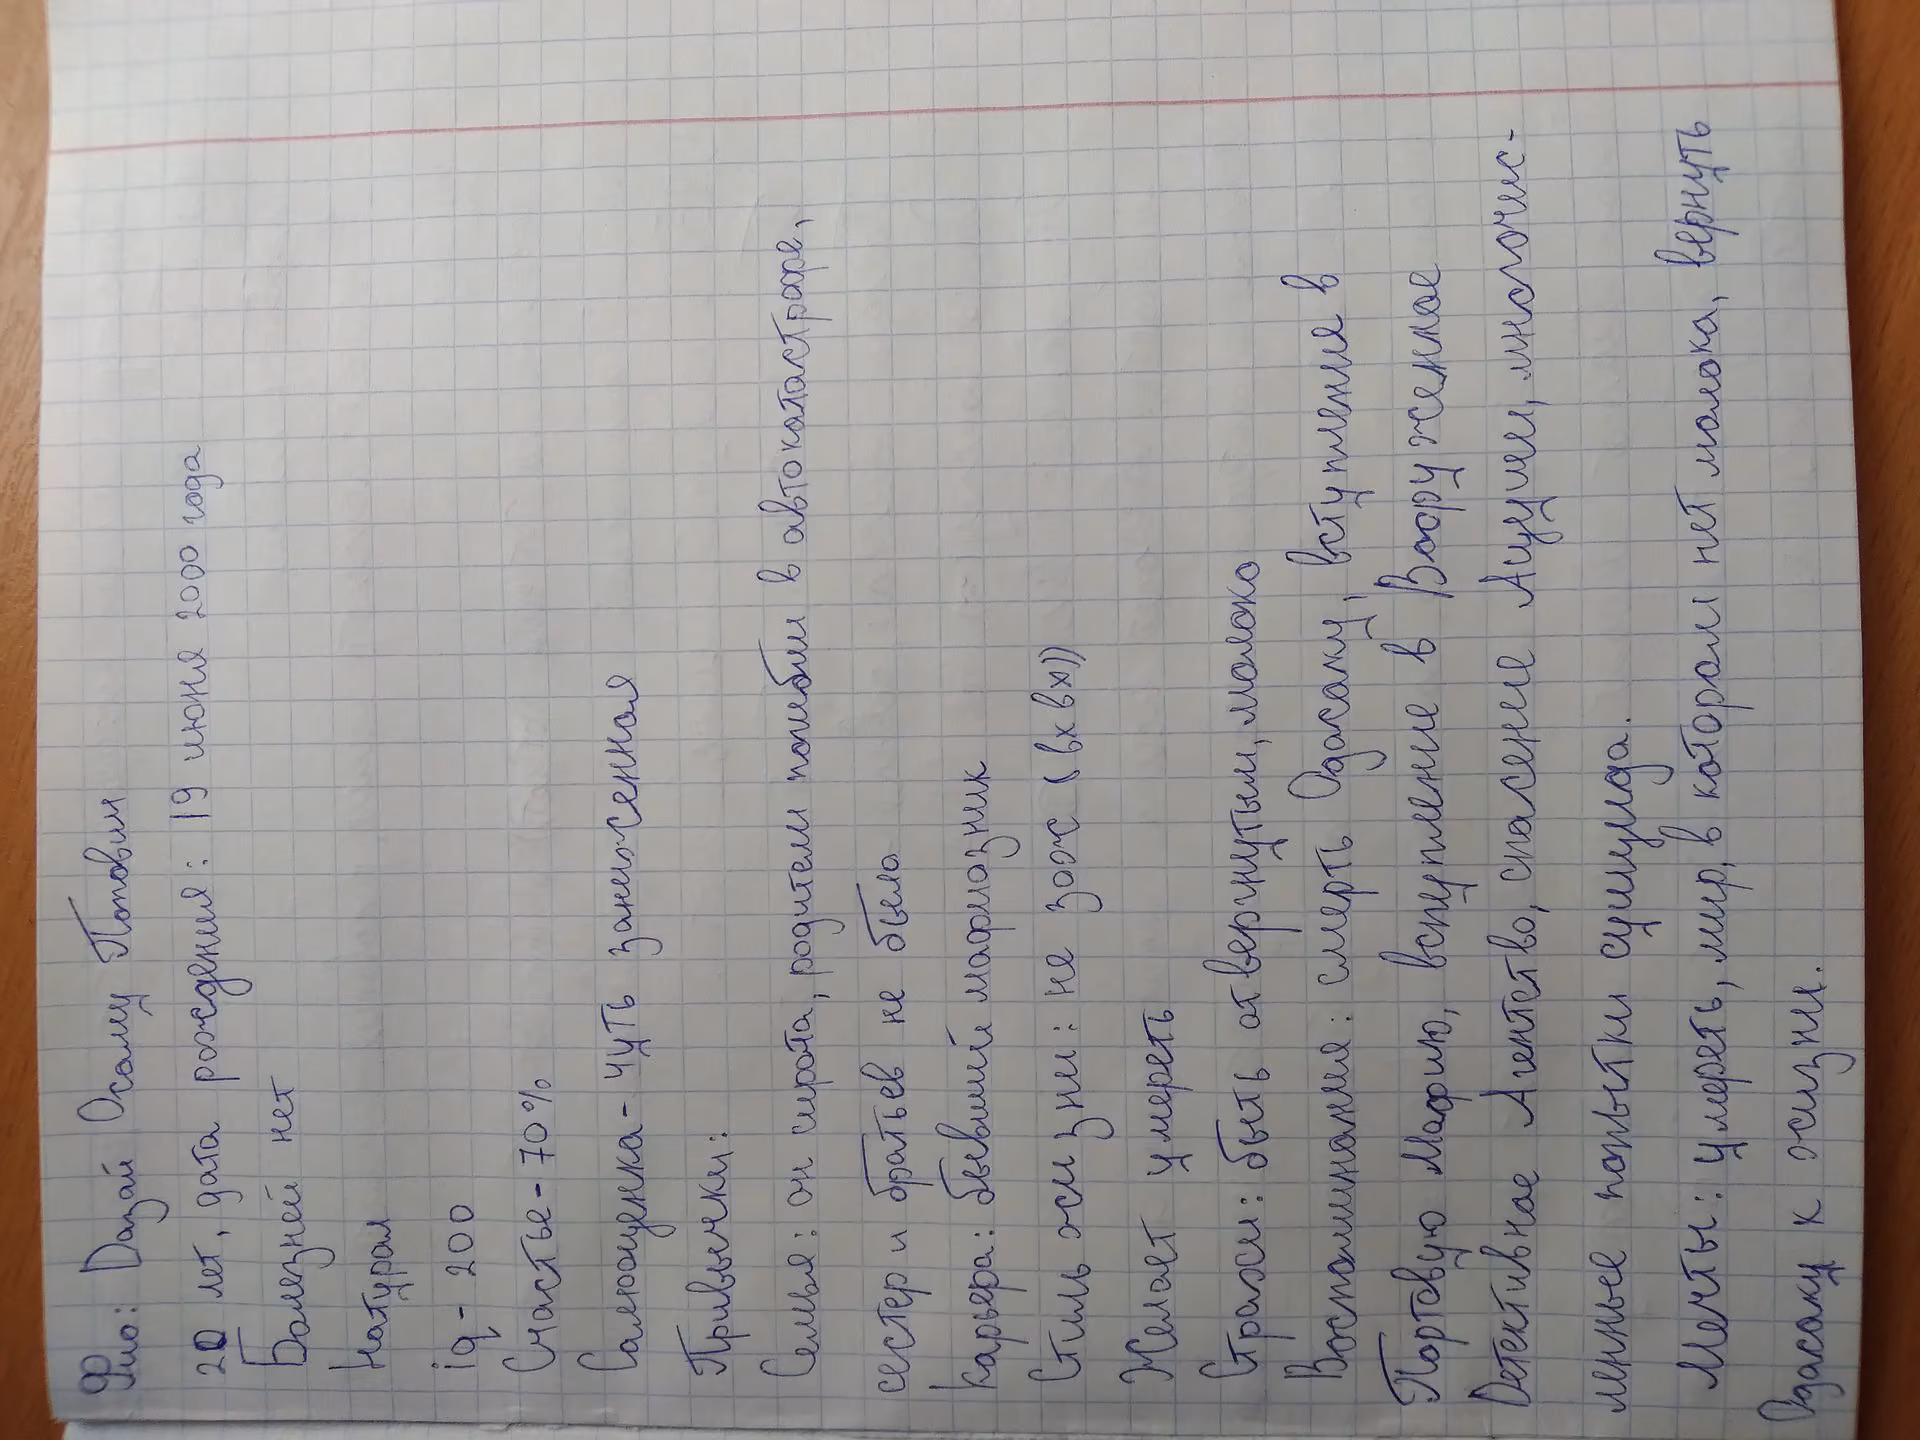 Фио: Dазай Осаму Потовии
20 лет, дата рождения: 19 июня 2000 года
Болезней нет
Натурал
iq - 200
Счастье - 70%
Самооценка - чуть заниженная
Привычки:
Семья: он сирота, родители погибли в автокатастрофе,
сестер и братьев не было
Карьера: бывший мафиозник
Стиль жизни: не зож (вхвх))
Желает умереть
Страхи: быть отвергнутым, молоко
Воспоминания: смерть Одасаку, вступление в
Портовую Мафию, вступление в Вооруженное
Dетективное Агентство, спасение Ацуши, многочис-
ленные попытки суицида.
Мечты: умереть, мир, в котором нет молока, вернуть
Одасаку к жизни.